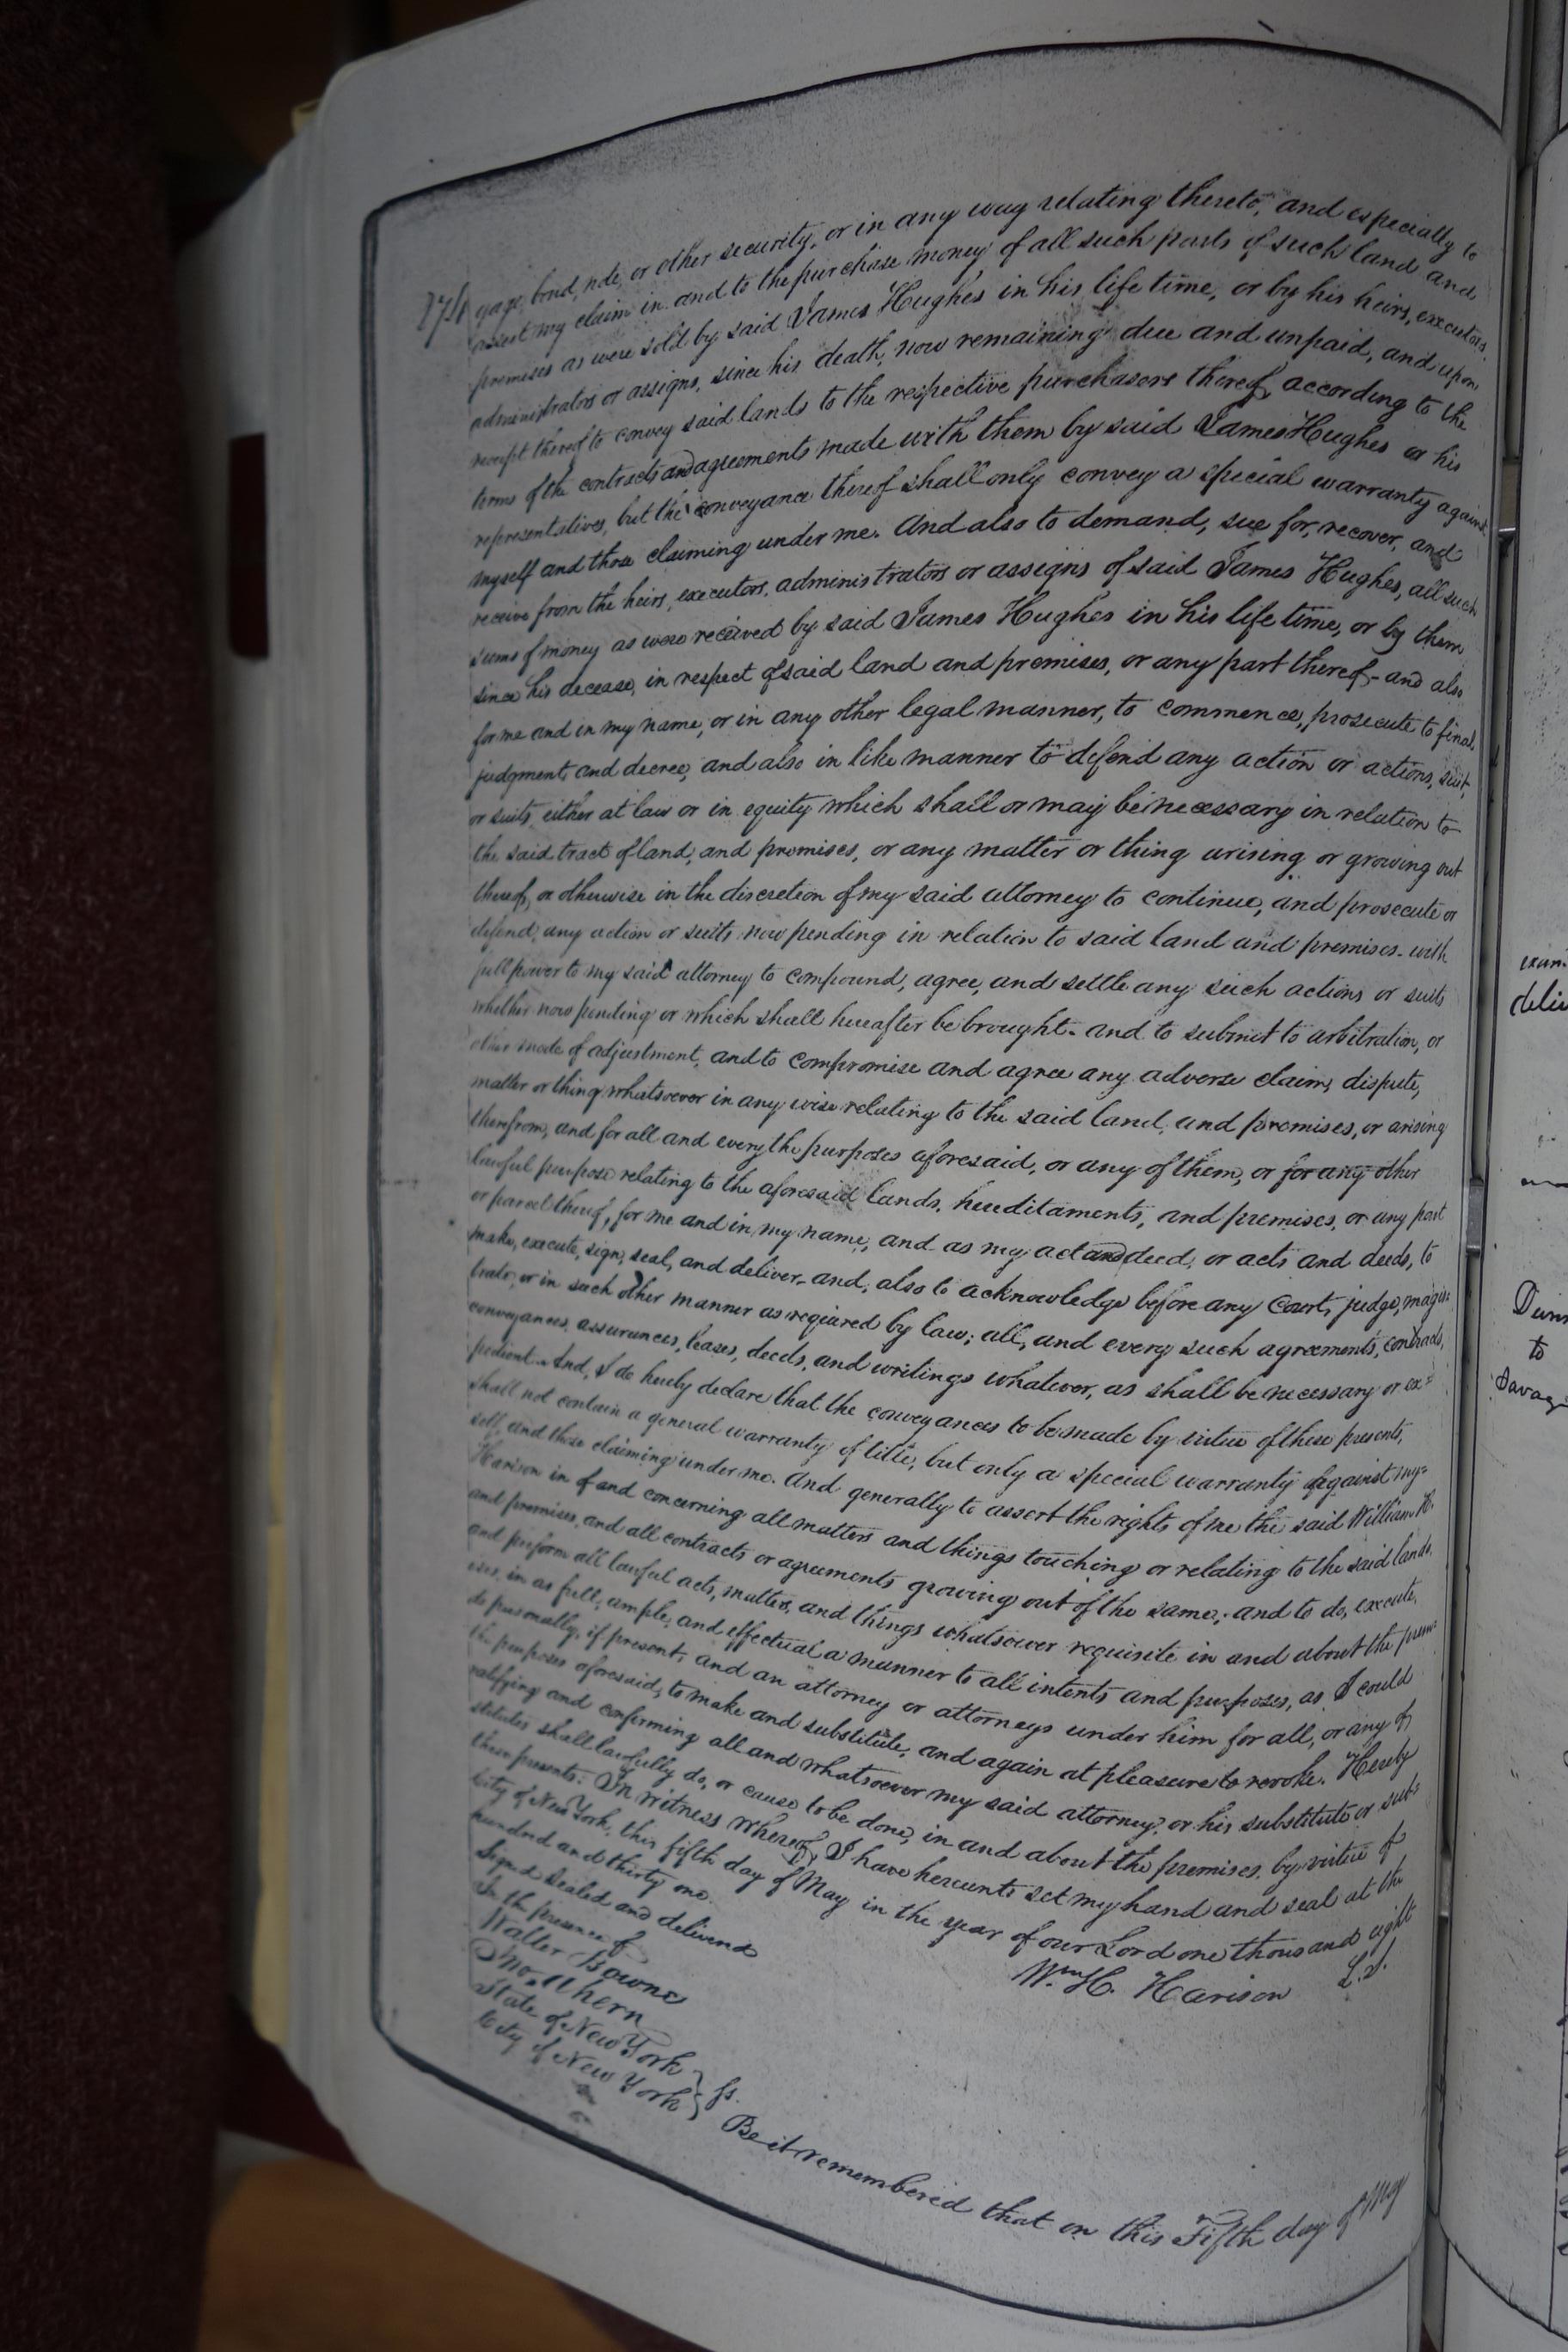 gage, bond, note, or other security, or in any way relating thereto, and especially to
assert my claim in and to the purchase money of all such parts of such land and
premises as were sold by said James Hughes in his life time, or by his heirs, executors,
administrators or assigns, since his death, now remaining due and unpaid, and upon
receipt thereof to convey said lands to the respective purchasers thereof, according to the
terms of the contracts and agreements made with them by said James Hughes or his
representatives, but the conveyance thereof shall only convey a special warranty against
myself and those claiming under me. And also to demand, sue for, recover, and
receive from the heirs, executors, administrators or assigns of said James Hughes, all such
sums of money as were received by said James Hughes in his life time, or by them
since his decease, in respect of said land and premises, or any part thereof,- and also
for me and in my name, or in any other legal manner, to commence, prosecute to final
judgment and decree, and also in like manner to defend any action or actions, suit,
or suits, either at law or in equity which shall or may be necessary in relation to
the said tract of land, and premises, or any matter or thing arising or growing out
thereof, or otherwise in the discretion of my said attorney to continue, and prosecute or
defend, any action or suits now pending in relation to said land and premises - with
full power to my said attorney to compound, agree, and settle any such actions or suits
whether now pending or which shall hereafter be brought. and to submit to arbitration, or
other mode of adjustment, and to compromise and agree any adverse claim, dispute,
matter or thing whatsoever in any wise relating to the said land, and premises, or arising
therefrom, and for all and every the purposes aforesaid, or any of them, or for any other
lawful purpose relating to the aforesaid lands, hereditaments, and premises, or any part
or parcel thereof, for me and in my name, and as my act and deed, or acts and deeds, to
make, execute, sign, seal, and deliver, and, also to acknowledge before any Court, judge, magis=
trate, or in such other manner as required by law; all, and every such agreements, contracts,
conveyances, assurances, leases, deeds, and writings whatever, as shall be necessary or ex=
pedient. And, I do hereby declare that the conveyances to be made by virtue of these presents,
shall not contain a general warranty of title, but only a special warranty against my=
self, and those claiming under me. And generally to assert the rights of me the said William H.
Harison in of and concerning all matters and things touching or relating to the said lands,
and premises, and all contracts or agreements growing out of the same, and to do, execute,
and perform all lawful acts, matters, and things whatsoever requisite in and about the prem=
ises, in as full, ample, and effectual a manner to all intents and purposes, as I could
do personally, if present, and an attorney or attorneys under him for all, or any of
the purposes aforesaid, to make and substitute, and again at pleasure to revoke. Hereby
ratifying and confirming all and whatsoever my said attorney, or his substitute or sub=
stitutes shall lawfully do, or cause to be done, in and about the premises, by virtue of
these presents. In witness whereof, I have hereunto set my hand and seal at the
City of New York, this fifth day of May in the year of our Lord one thousand eight
hundred and thirty one.
Signed Sealed and delivered
In the presence of
Wm H. Harison L.S.
Walter Bowne
Jno. Ahern
State of New York
City of New York } ss.
Be it remembered that on this Fifth day of May
exam.
deliv
to
Savag